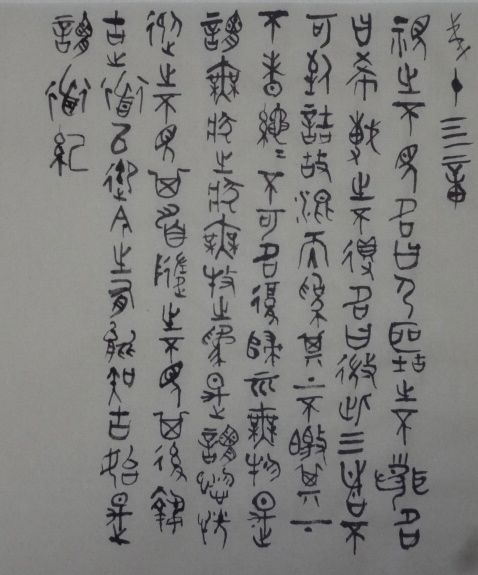 十四章
視之不見名曰夷聽之不聞名
曰希搏之不得名曰微此三者不
可致詰故混而為其上不皦其下
不昧繩繩不可名復歸於無物是
謂無狀之狀無物之象是謂惚恍
迎之不見其首隨之不見其後執
古之道以御今之有能知古始是
謂道紀